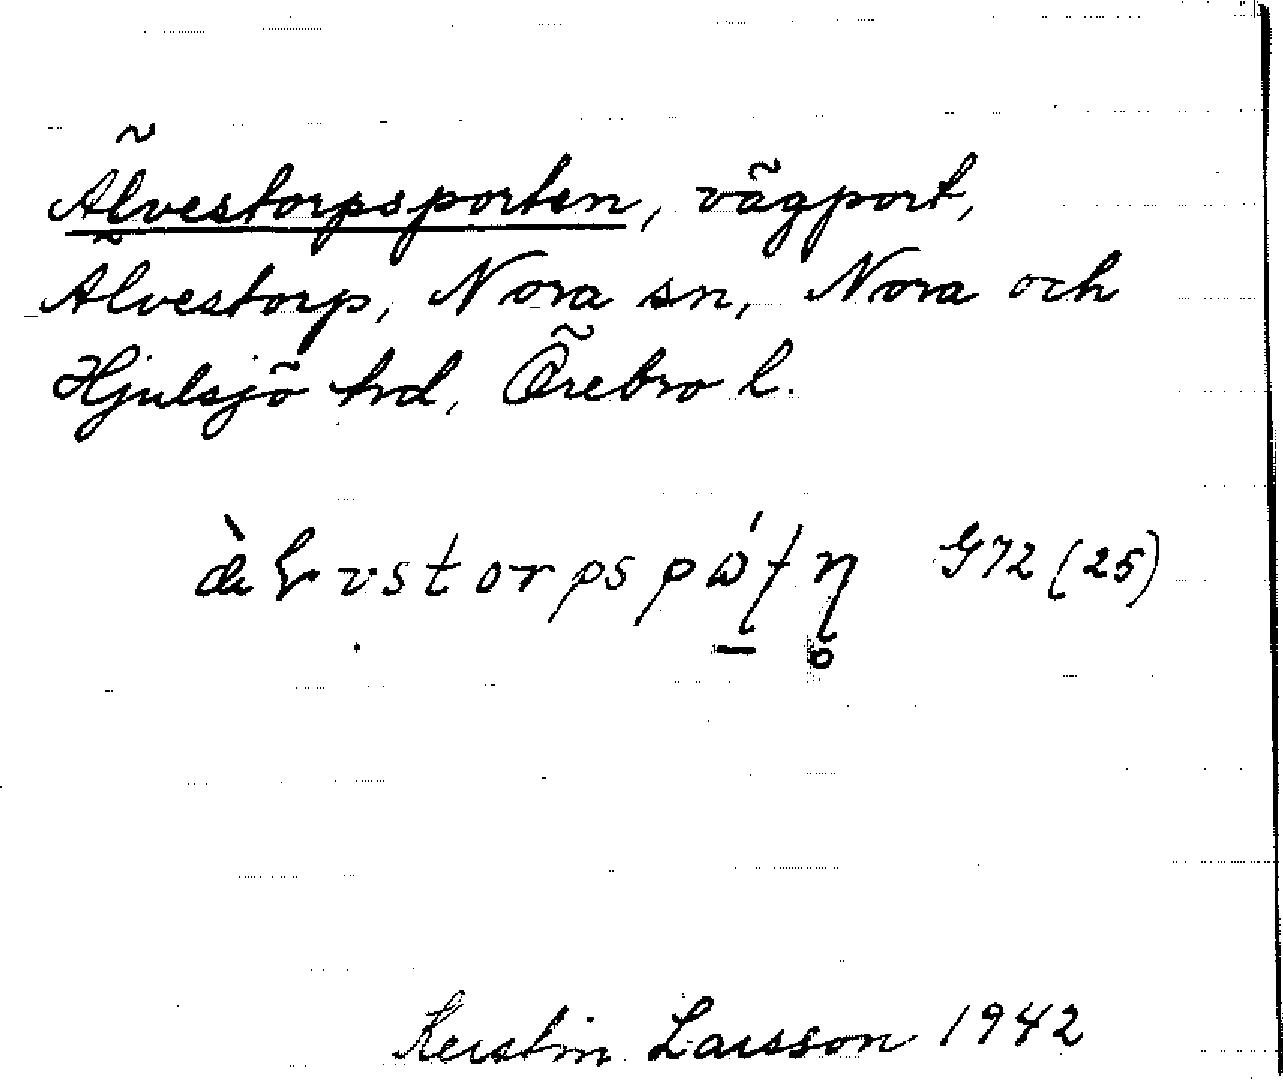 Älvestorpsporten, vägport,
Älvestorp, Nora sn, Nora och
Hjulsjö hrd, Örebro l.
G72 (25)
Kerstin Larsson 1942